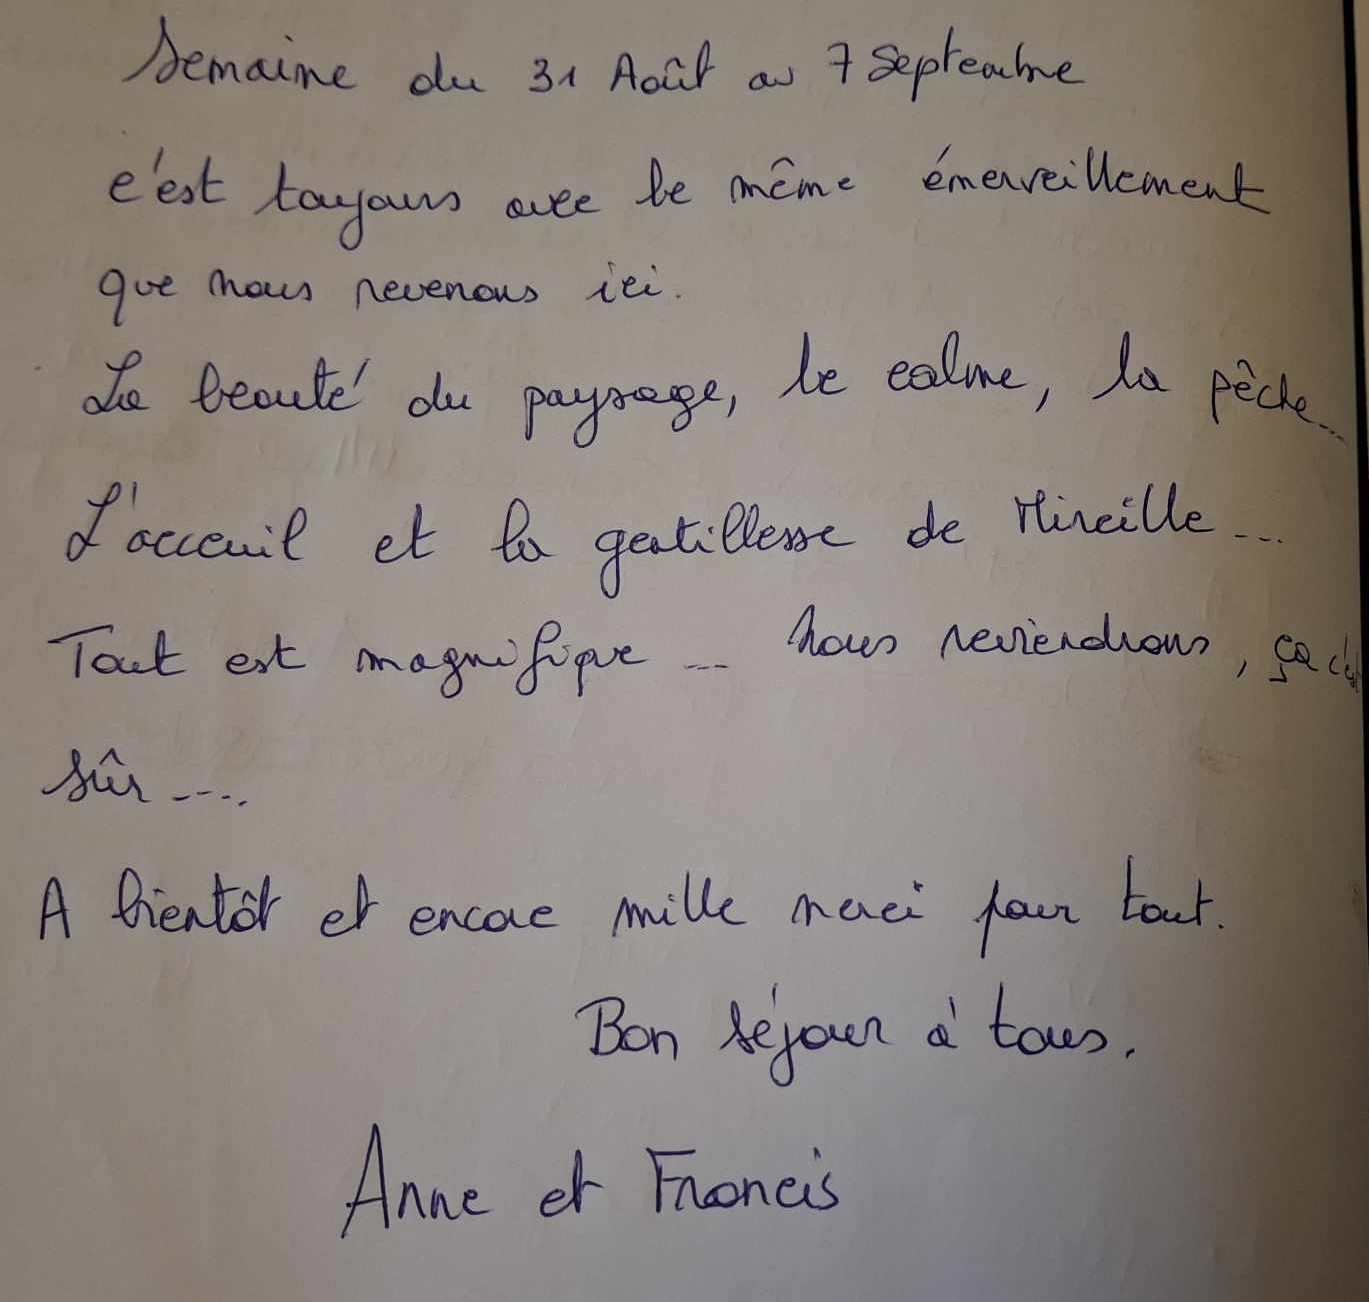 Semaine du 31 Août au 7 Septembre
c'est toujours avec le même émerveillement
que nous revenons ici.
La beauté du paysage, le calme, la pêche...
L'acceuil et la gentillesse de Mireille...
Tout est magnifique... nous reviendrons, ça c'est
sûr....
A bientôt et encore mille merci pour tout.
Bon séjour à tous.
Anne et Francis